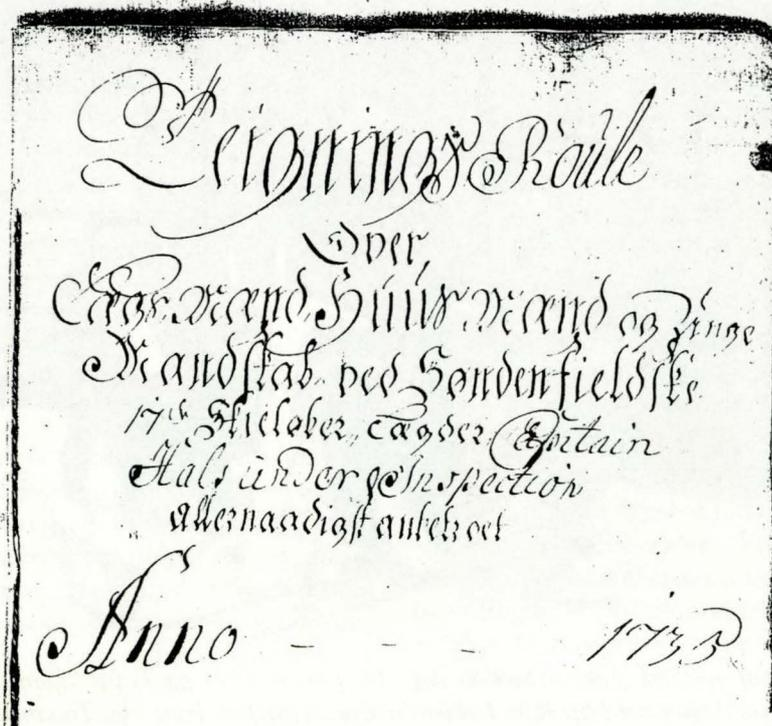 Teignings Roùle
Over
Lægs Mænd, Huùs Mænd og Ùnge
Mandskab ved Søndenfieldske
Skieløber Lægder Capitain
Hals ùnder Inspection
allernaadigst anbetroet
Anno - - - 1735